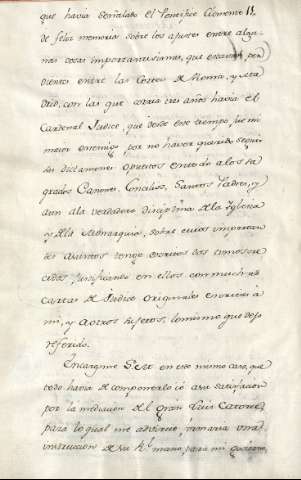 que havia señalado el Pontifice Clemente 11,
de feliz memoria sobre los ajustes entre algu-
nas cosas importantissimas, que estavan pen
dientes entre las Cortes de Roma, y Ma
drid, con las que corria tres años havia el
Cardenal Judice, que desde este tiempo fue mi
mayor enemigo por no haver querido seguir
sus dictamenes opuestos en todo a los Sa
grados Canones, Concilios, Santos Padres, y
aun a la verdadera disciplina de la Yglesia
y de la Monarquia, sobre cuios importan
tes asuntos tengo escritos dos tomos
justificando en ellos con muchas
cartas de Judice originales escritas à
mi, y a otros sujetos, lo mismo que dejo
referido.
Encargme S. M. en este mismo caso, que
todo havia de componerlo io a su satisfacion
por la mediacion del gran Luis Catorze,
para lo qual me advirtio, formaria una
instruccion de su Rl. mano, para mi govierno,